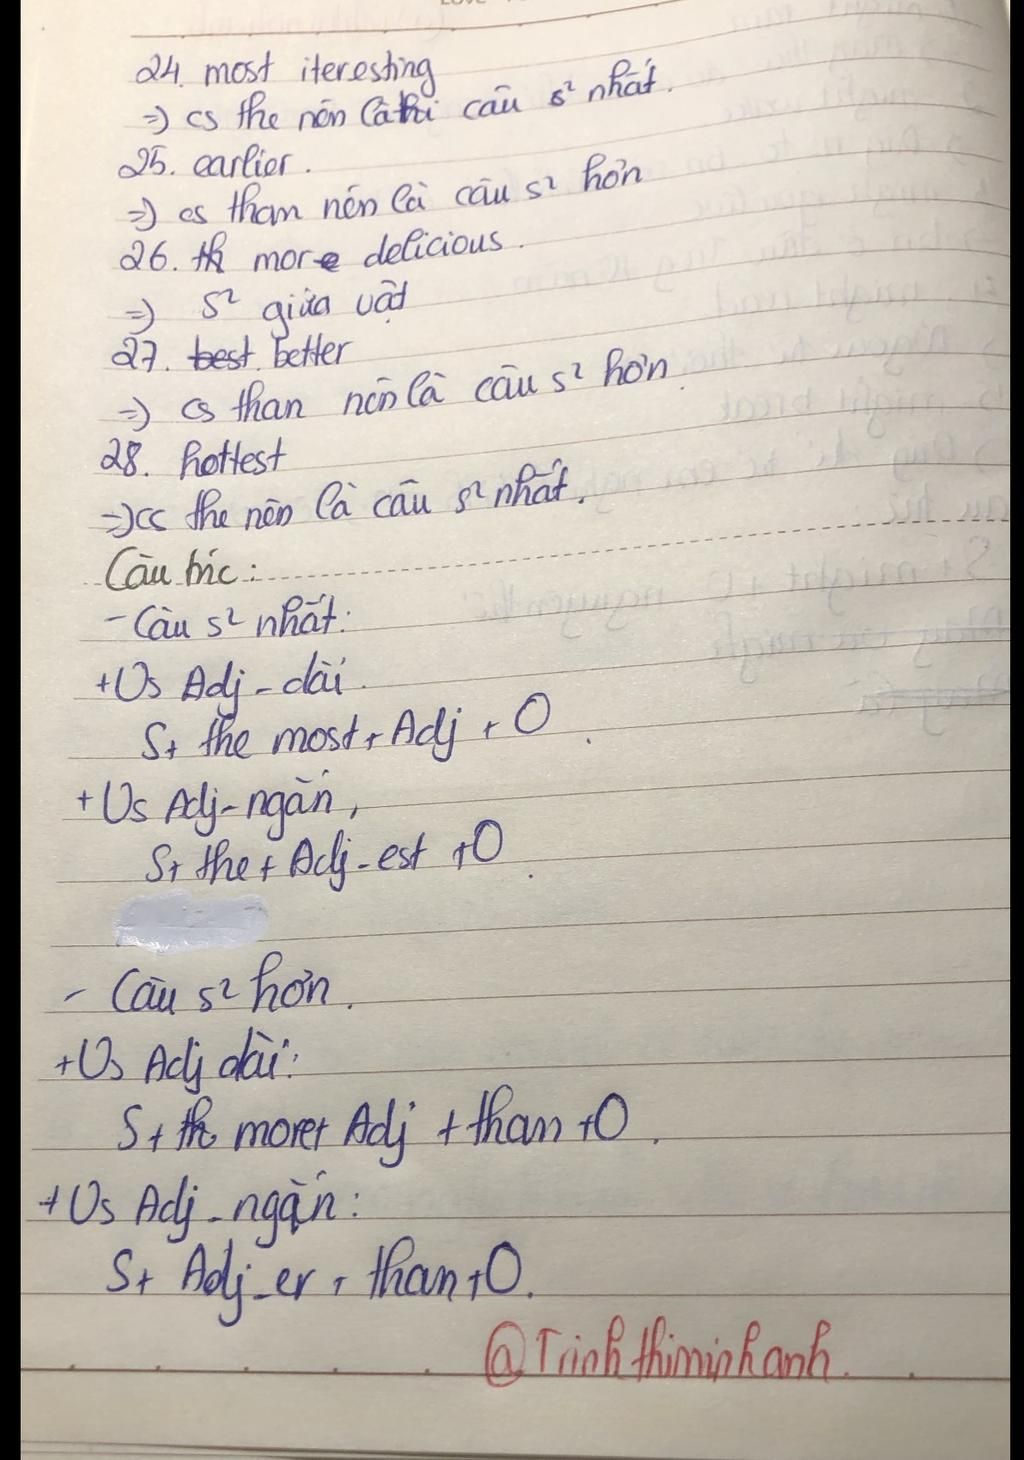 24. most iteresting
=) cs the nên là thì câu s² nhất.
25. earlier.
=) cs than nên là câu s² hơn
26. more delicious.
=) s² giữa vật
27. best better
=) cs than nên là câu s² hơn.
28. hottest
=) cs the nên là câu s² nhất.
Cấu trúc:
- Câu s² nhất:
+ Vs Adj - dài.
S + the most + Adj + O.
+ Vs Adj - ngắn,
S + the + Adj - est + O.
- Câu s² hơn.
+ Vs Adj dài:
S + more + Adj + than + O.
+ Vs Adj - ngắn:
S + Adj - er + than + O.
@Trinhthiminhanh.